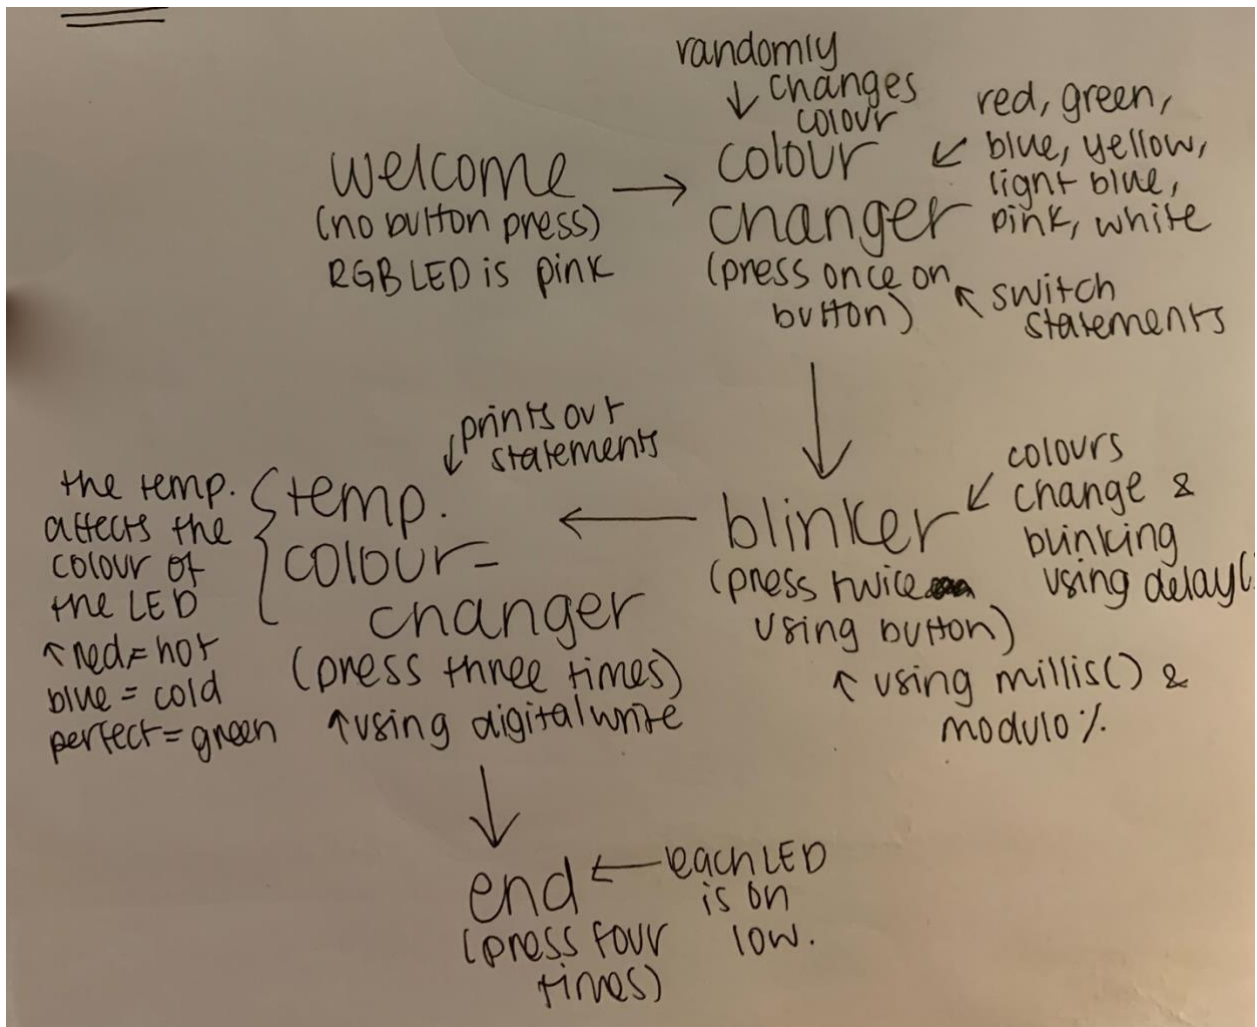 welcome
(no button press)
RGB LED is pink
randomly
changes
colour
colour
changer
(press once on
button)
red, green,
blue, yellow,
light blue,
pink, white
switch
statements
blinker
(press twice
using button)
colours
change &
blinking
using delay(
using millis() &
modulo %
prints out
statements
temp.
colour-
changer
(press three times)
using digitalwrite
the temp.
affects the
colour of
the LED
red = hot
blue = cold
perfect = green
end
(press four
times)
each LED
is on
low.